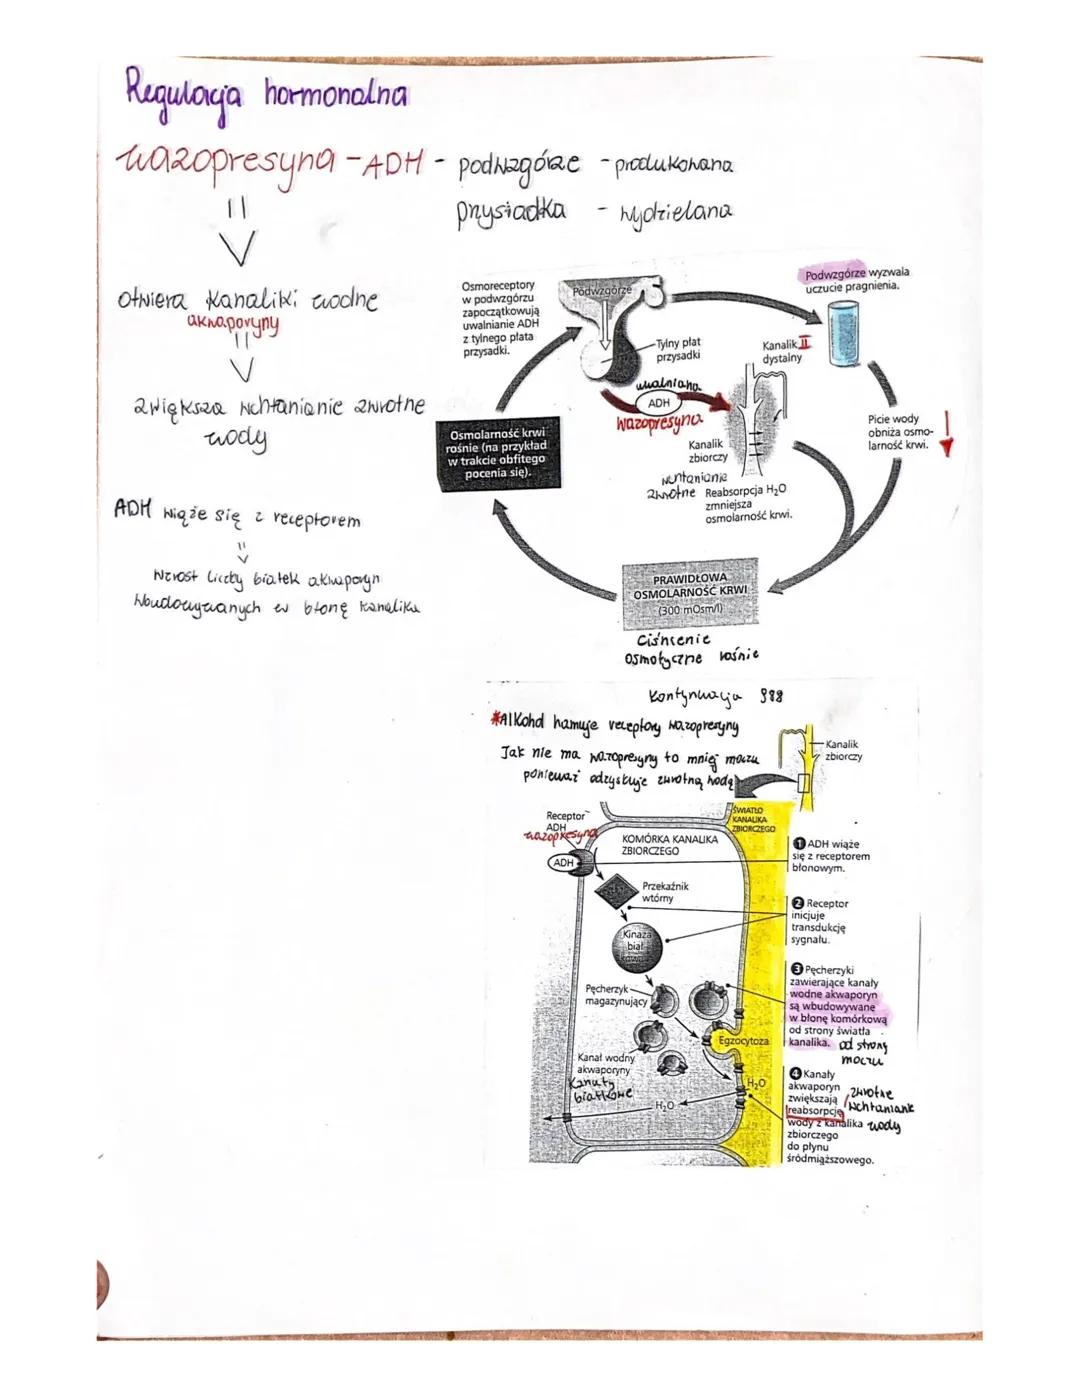 Regulacja hormonalna
wazopresyna - ADH - podwzgórze - produkowana
przysiadka - wydzielana
otwiera kanaliki wodne
akwaporyny
zwiększa wchłanianie zwrotne
wody
ADH wiąże się z receptorem
wzrost liczby białek akwaporyn
wbudowywanych w błonę kanalika
Osmoreceptory
w podwzgórzu
zapoczątkowują
uwalnianie ADH
z tylnego płata
przysadki.
Podwzgórze
Podwzgórze wyzwala
uczucie pragnienia.
Tylny płat
przysadki
Kanalik II
dystalny
uwalniana
ADH
wazopresyna
Kanalik
zbiorczy
Picie wody
obniża osmo-
larność krwi.
Osmolarność krwi
rośnie (na przykład
w trakcie obfitego
pocenia się).
wchłanianie
zwrotne
Reabsorpcja H₂O
zmniejsza
osmolarność krwi.
PRAWIDŁOWA
OSMOLARNOŚĆ KRWI
(300 mOsm/l)
Ciśnienie
osmotyczne rośnie
kontynuacja
*Alkohol hamuje receptory wazopresyny
Jak nie ma wazopresyny to mniej moczu
ponieważ odzyskuje zwrotną wodę
Kanalik
zbiorczy
ŚWIATŁO
KANALIKA
ZBIORCZEGO
Receptor
ADH
wazopresyna
ADH
KOMÓRKA KANALIKA
ZBIORCZEGO
Przekaźnik
wtórny
Kinaza
biał
Pęcherzyk
magazynujący
Egzocytoza
Kanał wodny
akwaporyny
Kanały
białkowe
H₂O
H₂O
1 ADH wiąże
się z receptorem
błonowym.
2 Receptor
inicjuje
transdukcję
sygnału.
3 Pęcherzyki
zawierające kanały
wodne akwaporyn
są wbudowywane
w błonę komórkową
od strony światła
kanalika. od strony
moczu
4 Kanały
akwaporyn
zwiększają
reabsorpcję
wody z kanalika
zbiorczego
do płynu
śródmiąższowego.
zwrotne
wchłanianie
wody